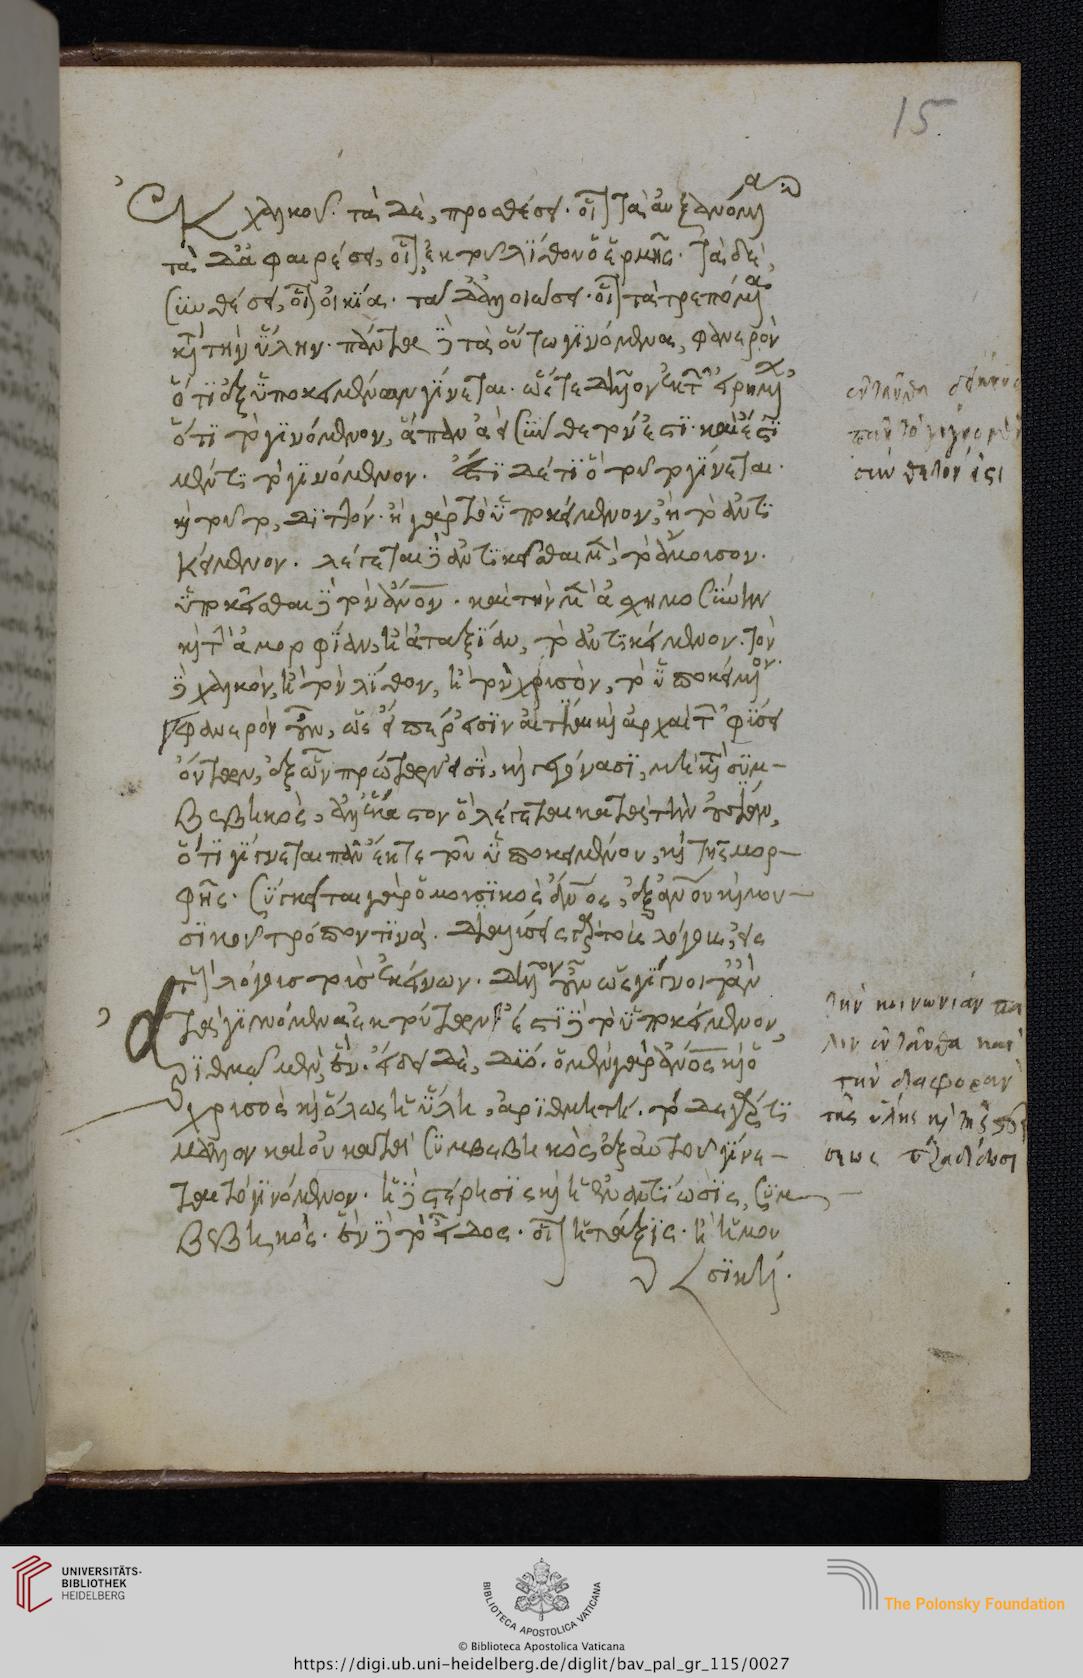 15
ἐκ χαλκοῦ· τὰ δὲ, προσθέσει· οἷον τὰ αὐξανόμενα
τὰ δ' ἀφαιρέσει, οἷον ἐκ τοῦ λίθου ὁ ἑρμῆς· τὰ δὲ
συνθέσει, οἷον οἰκία· τὰ δ' ἀλλοιώσει· οἷον τὰ τρεπόμενα
κατὰ τὴν ὕλην· πάντα δὲ τὰ οὕτω γινόμενα, φανερὸν
ὅτι ἐξ ὑποκειμένων γίνεται· ὥστε δῆλον ἐκ τῶν εἰρημένων
ὅτι τὸ γινόμενον, ἅπαν ἀεὶ συνθετόν ἐστι· καὶ ἔστι
μέν τι τὸ γινόμενον· ἔστι δέ τι ὃ τοῦτο γίνεται·
καὶ τοῦτο, διττόν· ἢ γὰρ τὸ ὑποκείμενον, ἢ τὸ ἀντι
κείμενον. λέγω δὲ ἀντικεῖσθαι μὲν, τὸ ἄμουσον·
ὑποκεῖσθαι δὲ τὸν ἄνθρωπον· καὶ τὴν μὲν ἀσχημοσύνην
καὶ τὴν ἀμορφίαν, ἢ ἀταξίαν, τὸ ἀντικείμενον· τὸν
δὲ χαλκὸν, ἢ τὸν λίθον, ἢ τὸν χρυσὸν, τὸ ὑποκείμενον·
φανερὸν οὖν, ὡς εἴπερ εἰσὶν αἰτίαι καὶ ἀρχαὶ τῶν φύσει
ὄντων, ἐξ ὧν πρώτων εἰσὶ, καὶ γεγόνασι, μὴ κατὰ συμ-
βεβηκὸς, ἀλλ' ἕκαστον ὃ λέγεται κατὰ τὴν οὐσίαν,
ὅτι γίγνεται πᾶν ἔκ τε τοῦ ὑποκειμένου, καὶ τῆς μορ-
φῆς· σύγκειται γὰρ ὁ μουσικὸς ἄνθρωπος, ἐξ ἀνθρώπου καὶ μου-
σικοῦ τρόπον τινά· διαλύσεις γὰρ τοὺς λόγους, εἰς
τοὺς λόγους τοὺς ἐκείνων· δῆλον οὖν ὡς γίγνοιτ' ἂν
τὰ γινόμενα ἐκ τούτων· ἔστι δὲ τὸ ὑποκείμενον,
ἀριθμῷ μὲν, ἕν· εἴδει δὲ, δύο· ὁ μὲν γὰρ ἄνθρωπος καὶ ὁ
χρυσὸς καὶ ὅλως ἡ ὕλη, ἀριθμητή· τόδε γάρ τι
μᾶλλον καὶ οὐ κατὰ συμβεβηκὸς ἐξ αὐτοῦ γίνε-
ται τὸ γινόμενον· ἡ δὲ στέρησις καὶ ἡ ἐναντίωσις, συμ-
βεβηκός· ἓν δὲ τὸ εἶδος· οἷον ἡ τάξις· ἢ ἡ μου
σική·
ἐνταῦθα
πᾶν τὸ γιγνόμενον
συνθετόν ἐστι
τὴν κοινωνίαν πά
λιν ἐνταῦθα καὶ
τὴν διαφορὰν
τῆς ὕλης καὶ τῆς στερή
σεως
UNIVERSITÄTS-
BIBLIOTHEK
HEIDELBERG
BIBLIOTECA APOSTOLICA VATICANA
The Polonsky Foundation
© Biblioteca Apostolica Vaticana
https://digi.ub.uni-heidelberg.de/diglit/bav_pal_gr_115/0027